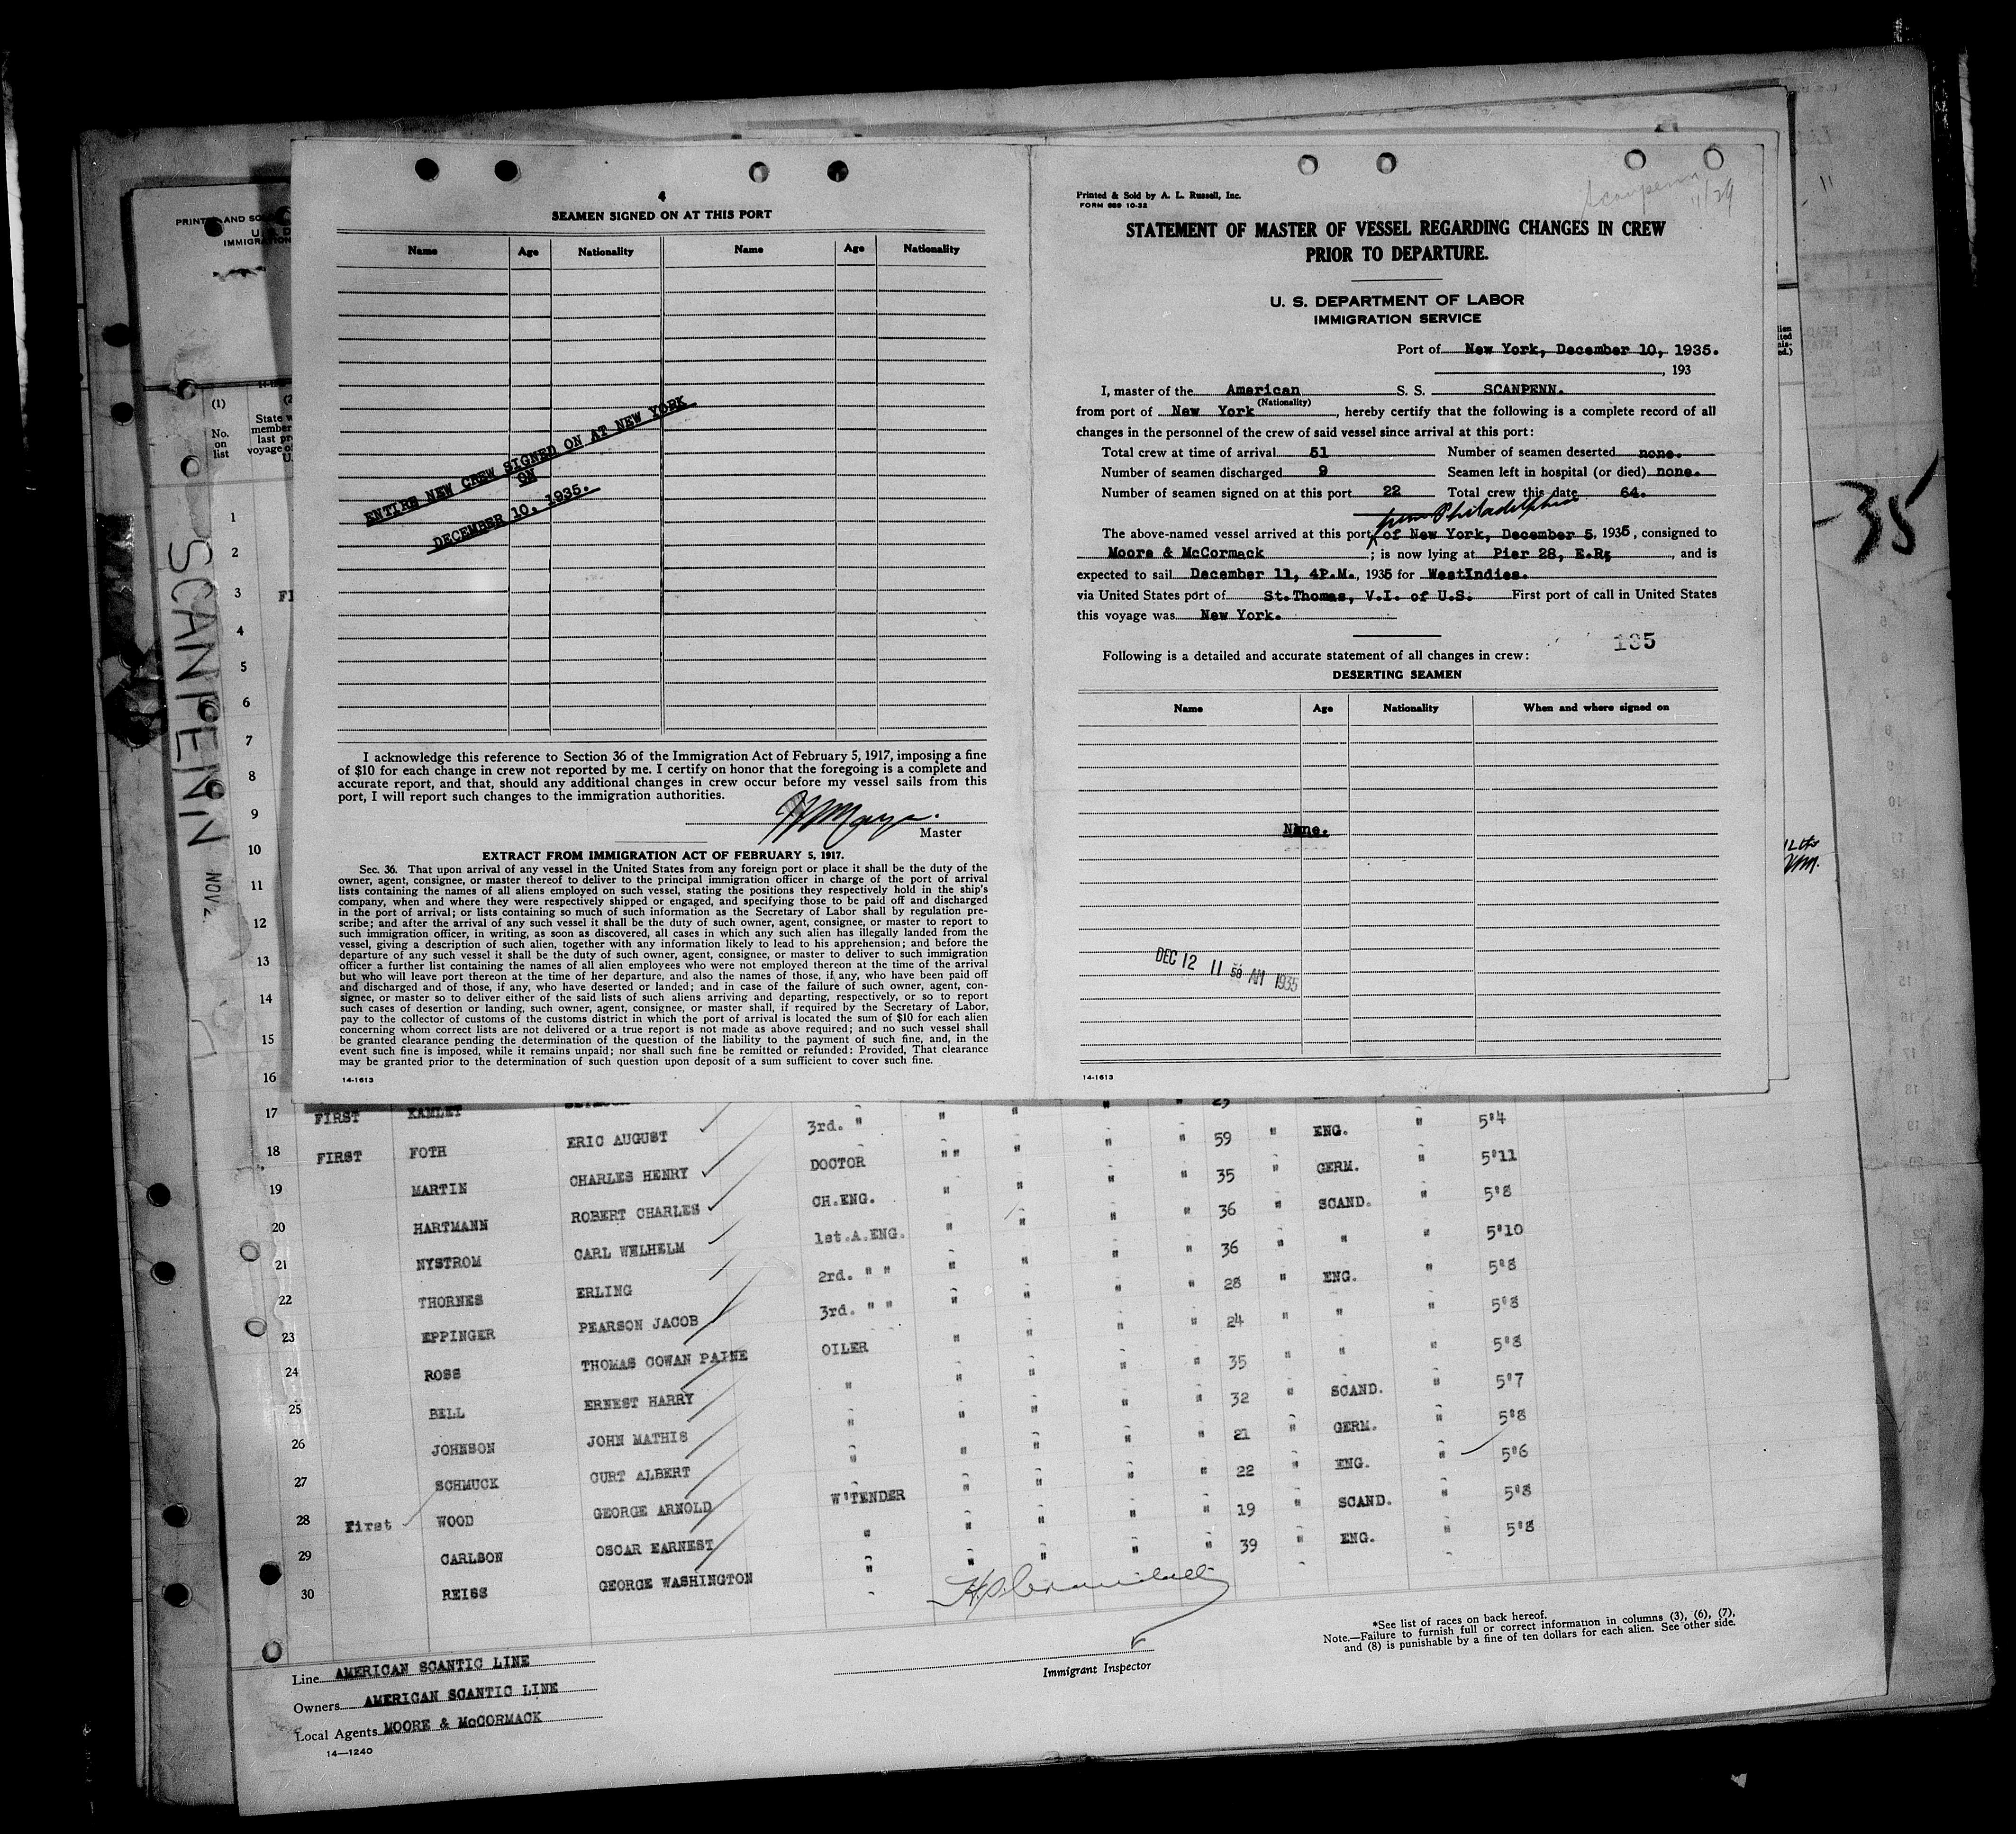 4
SEAMEN SIGNED ON AT THIS PORT
Name Age Nationality Name Age Nationality
ENTIRE NEW CREW SIGNED ON AT NEW YORK
ON
DECEMBER 10, 1935.
I acknowledge this reference to Section 36 of the Immigration Act of February 5, 1917, imposing a fine
of $10 for each change in crew not reported by me. I certify on honor that the foregoing is a complete and
accurate report, and that, should any additional changes in crew occur before my vessel sails from this
port, I will report such changes to the immigration authorities.
Master
EXTRACT FROM IMMIGRATION ACT OF FEBRUARY 5, 1917.
Sec. 36. That upon arrival of any vessel in the United States from any foreign port or place it shall be the duty of the
owner, agent, consignee, or master thereof to deliver to the principal immigration officer in charge of the port of arrival
lists containing the names of all aliens employed on such vessel, stating the positions they respectively hold in the ship's
company, when and where they were respectively shipped or engaged, and specifying those to be paid off and discharged
in the port of arrival; or lists containing so much of such information as the Secretary of Labor shall by regulation pre-
scribe; and after the arrival of any such vessel it shall be the duty of such owner, agent, consignee, or master to report to
such immigration officer, in writing, as soon as discovered, all cases in which any such alien has illegally landed from the
vessel, giving a description of such alien, together with any information likely to lead to his apprehension; and before the
departure of any such vessel it shall be the duty of such owner, agent, consignee, or master to deliver to such immigration
officer a further list containing the names of all alien employees who were not employed thereon at the time of the arrival
but who will leave port thereon at the time of her departure, and also the names of those, if any, who have been paid off
and discharged and of those, if any, who have deserted or landed; and in case of the failure of such owner, agent, con-
signee, or master so to deliver either of the said lists of such aliens arriving and departing, respectively, or so to report
such cases of desertion or landing, such owner, agent, consignee, or master shall, if required by the Secretary of Labor,
pay to the collector of customs of the customs district in which the port of arrival is located the sum of $10 for each alien
concerning whom correct lists are not delivered or a true report is not made as above required; and no such vessel shall
be granted clearance pending the determination of the question of the liability to the payment of such fine, and, in the
event such fine is imposed, while it remains unpaid; nor shall such fine be remitted or refunded: Provided, That clearance
may be granted prior to the determination of such question upon deposit of a sum sufficient to cover such fine.
14-1613
Scanpenn
11/29
Printed & Sold by A. L. Russell, Inc.
FORM 689 10-32
STATEMENT OF MASTER OF VESSEL REGARDING CHANGES IN CREW
PRIOR TO DEPARTURE.
U. S. DEPARTMENT OF LABOR
IMMIGRATION SERVICE
Port of New York, December 10, 1935.
, 193
I, master of the American S. S. SCANPENN.
(Nationality)
from port of New York, hereby certify that the following is a complete record of all
changes in the personnel of the crew of said vessel since arrival at this port:
Total crew at time of arrival 51 Number of seamen deserted none.
Number of seamen discharged 9 Seamen left in hospital (or died) none.
Number of seamen signed on at this port 22 Total crew this date 64.
from Philadelphia
The above-named vessel arrived at this port of New York, December 5, 1935, consigned to
Moore & McCormack ; is now lying at Pier 28, E.R. , and is
expected to sail December 11, 4P.M., 1935 for WestIndies.
via United States port of St.Thomas, V.I. of U.S. First port of call in United States
this voyage was New York.
135
Following is a detailed and accurate statement of all changes in crew:
DESERTING SEAMEN
Name Age Nationality When and where signed on
None.
DEC 12 11 58 AM 1935
14-1613
-35
SCANPENN NOV 2
(1)
No.
on
list
1
2
3
4
5
6
7
8
9
10
11
12
13
14
15
16
17 FIRST KAMLET 3rd. " " " " " 23
18 FIRST FOTH ERIC AUGUST DOCTOR " " " " " 59 " ENG. " 5'4
19 MARTIN CHARLES HENRY CH.ENG. " " " " 35 " GERM. " 5'11
20 HARTMANN ROBERT CHARLES 1st.A.ENG. " " " " 36 " SCAND. " 5'8
21 NYSTROM CARL WELHELM 2rd. " " " " " " 36 " " " 5'10
22 THORNES ERLING 3rd. " " " " " " 28 " ENG. " 5'8
23 EPPINGER PEARSON JACOB OILER " " " " 24 " " " 5'8
24 ROSS THOMAS COWAN PAINE " " " " " 35 " " " 5'8
25 BELL ERNEST HARRY " " " " " 32 " SCAND. " 5'7
26 JOHNSON JOHN MATHIS " " " " " 21 " GERM. " 5'8
27 SCHMUCK CURT ALBERT W'TENDER " " " " 22 " ENG. " 5'6
28 First WOOD GEORGE ARNOLD " " " " " 19 " SCAND. " 5'8
29 CARLSON OSCAR EARNEST " " " " " 39 " ENG. " 5'8
30 REISS GEORGE WASHINGTON
Line AMERICAN SCANTIC LINE
Owners AMERICAN SCANTIC LINE
Local Agents MOORE & McCORMACK
14—1240
Immigrant Inspector
*See list of races on back hereof.
Note.—Failure to furnish full or correct information in columns (3), (6), (7),
and (8) is punishable by a fine of ten dollars for each alien. See other side.